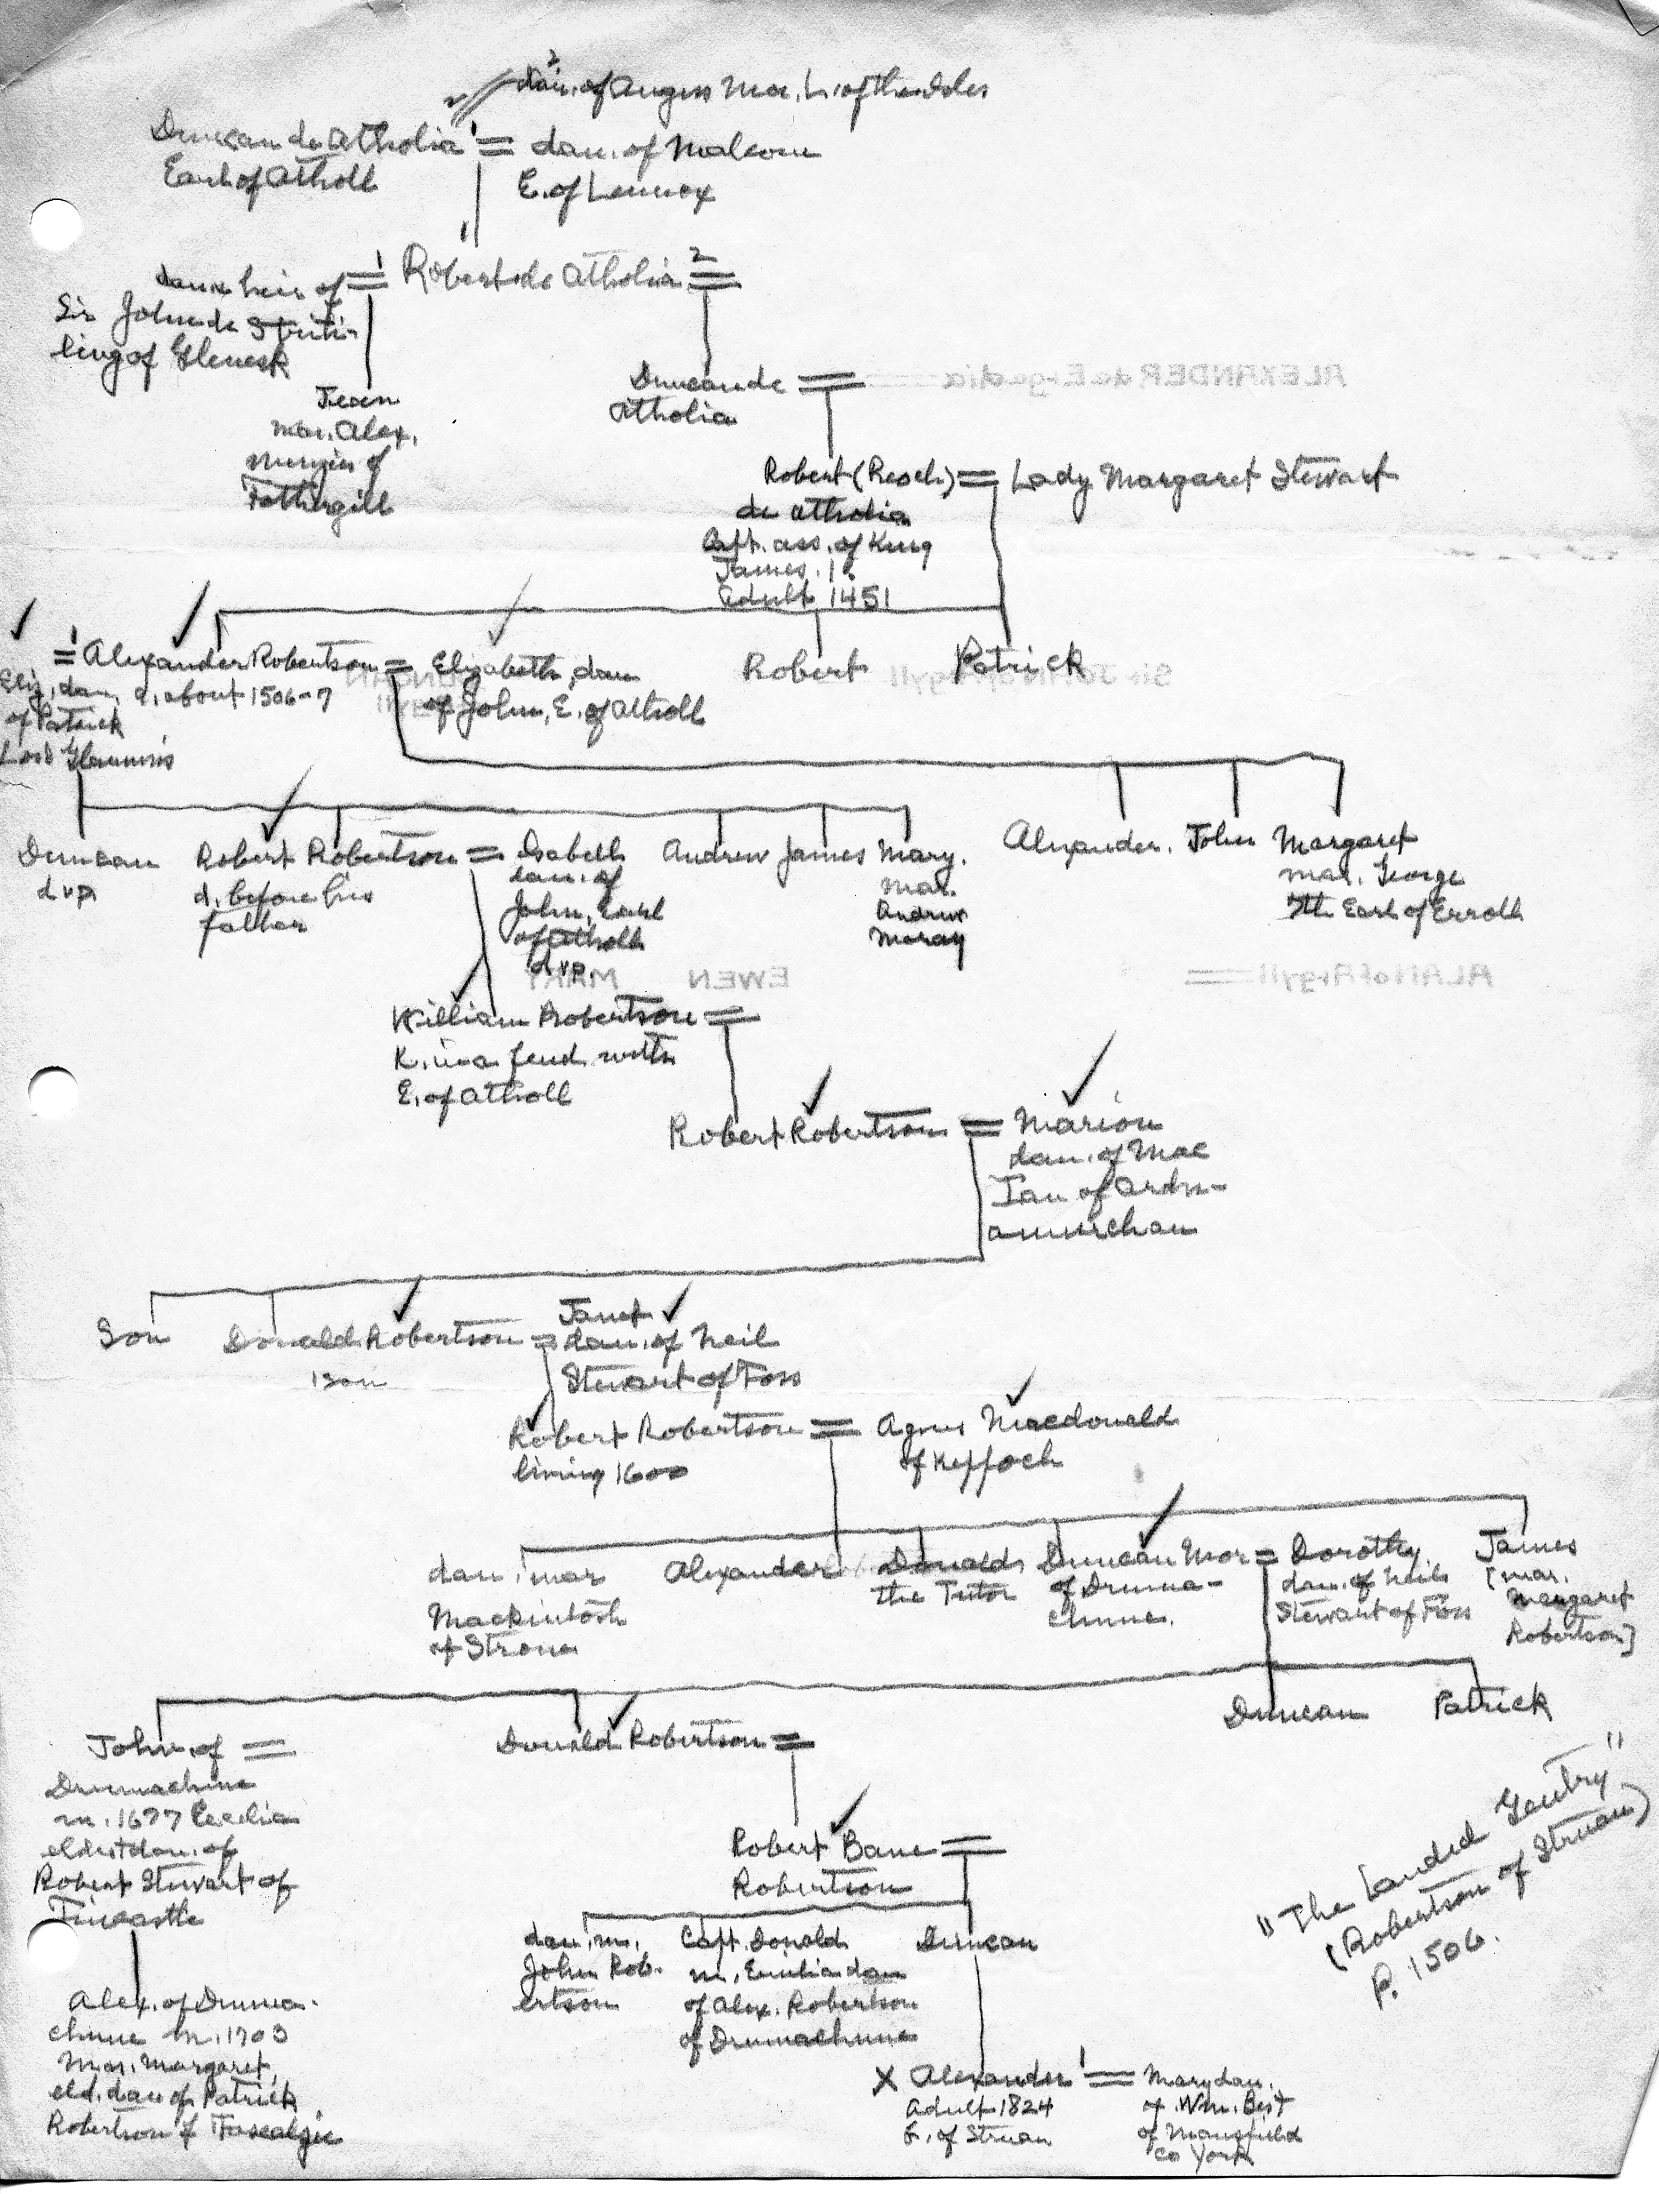 2
dau. of Angus Mor. L. of the Isles
2
Duncan de Atholia 1 = dau. of Malcom
Earl of Atholl
E. of Lennox
1
dau & heir of 1 = Robert de Atholia 2 =
Sir John de Striti-
ling of Glenesk
Jean
mar. Alex.
Menzies of
Fothergill
Duncan de =
Atholia
Robert (Reoch) = Lady Margaret Stewart
de Atholia
Capt. ass. of King
James. 1.
adult 1451
1 = Alexander Robertson = Elizabeth, dau
Eliz, dau. d. about 1506-7 of John, E. of Atholl
of Patrick
Lord Glammis
Robert
Patrick
Duncan
dvp.
Robert Robertson = Isabell
d. before his
father
dau. of
John, Earl
of Atholl
dvp.
Andrew James Mary.
mar.
Andrew
Moray
Alexander. John Margaret
mar. George
7th Earl of Erroll
William Robertson =
K. in a feud with
E. of Atholl
Robert Robertson = Marion
dau. of Mac
Ian of Ardn-
amurchan
Son Donald Robertson = Janet
1 son
dau. of Neil
Stewart of Foss
Robert Robertson = Agnes Macdonald
living 1600 of Keppoch
dau. mar
Mackintosh
of Strone
Alexander
Donald
the Tutor
Duncan Mor = Dorothy.
of Druma-
chune.
dau. of Neil
Stewart of Foss
James
[mar.
Margaret
Robertson]
John of =
Drumachine
m. 1677 Cecelia
eldest dau. of
Robert Stewart of
Fincastle
Donald Robertson =
Duncan Patrick
Robert Bane =
Robertson
"The Landed Gentry"
(Robertson of Struan)
P. 1506.
dau. m.
John Rob-
ertson
Capt. Donald
m. Emilia dau
of Alex. Robertson
of Drumachune
Duncan
Alex. of Druma-
chune m. 1703
Mar. Margaret,
eld. dau of Patrick
Robertson of
X Alexander 1 = Mary dau.
adult 1824 of Wm. Best
of Struan of Mansfield
Co York
ALEXANDER de Ergadia
EWEN MARY
ALAN of Argyll